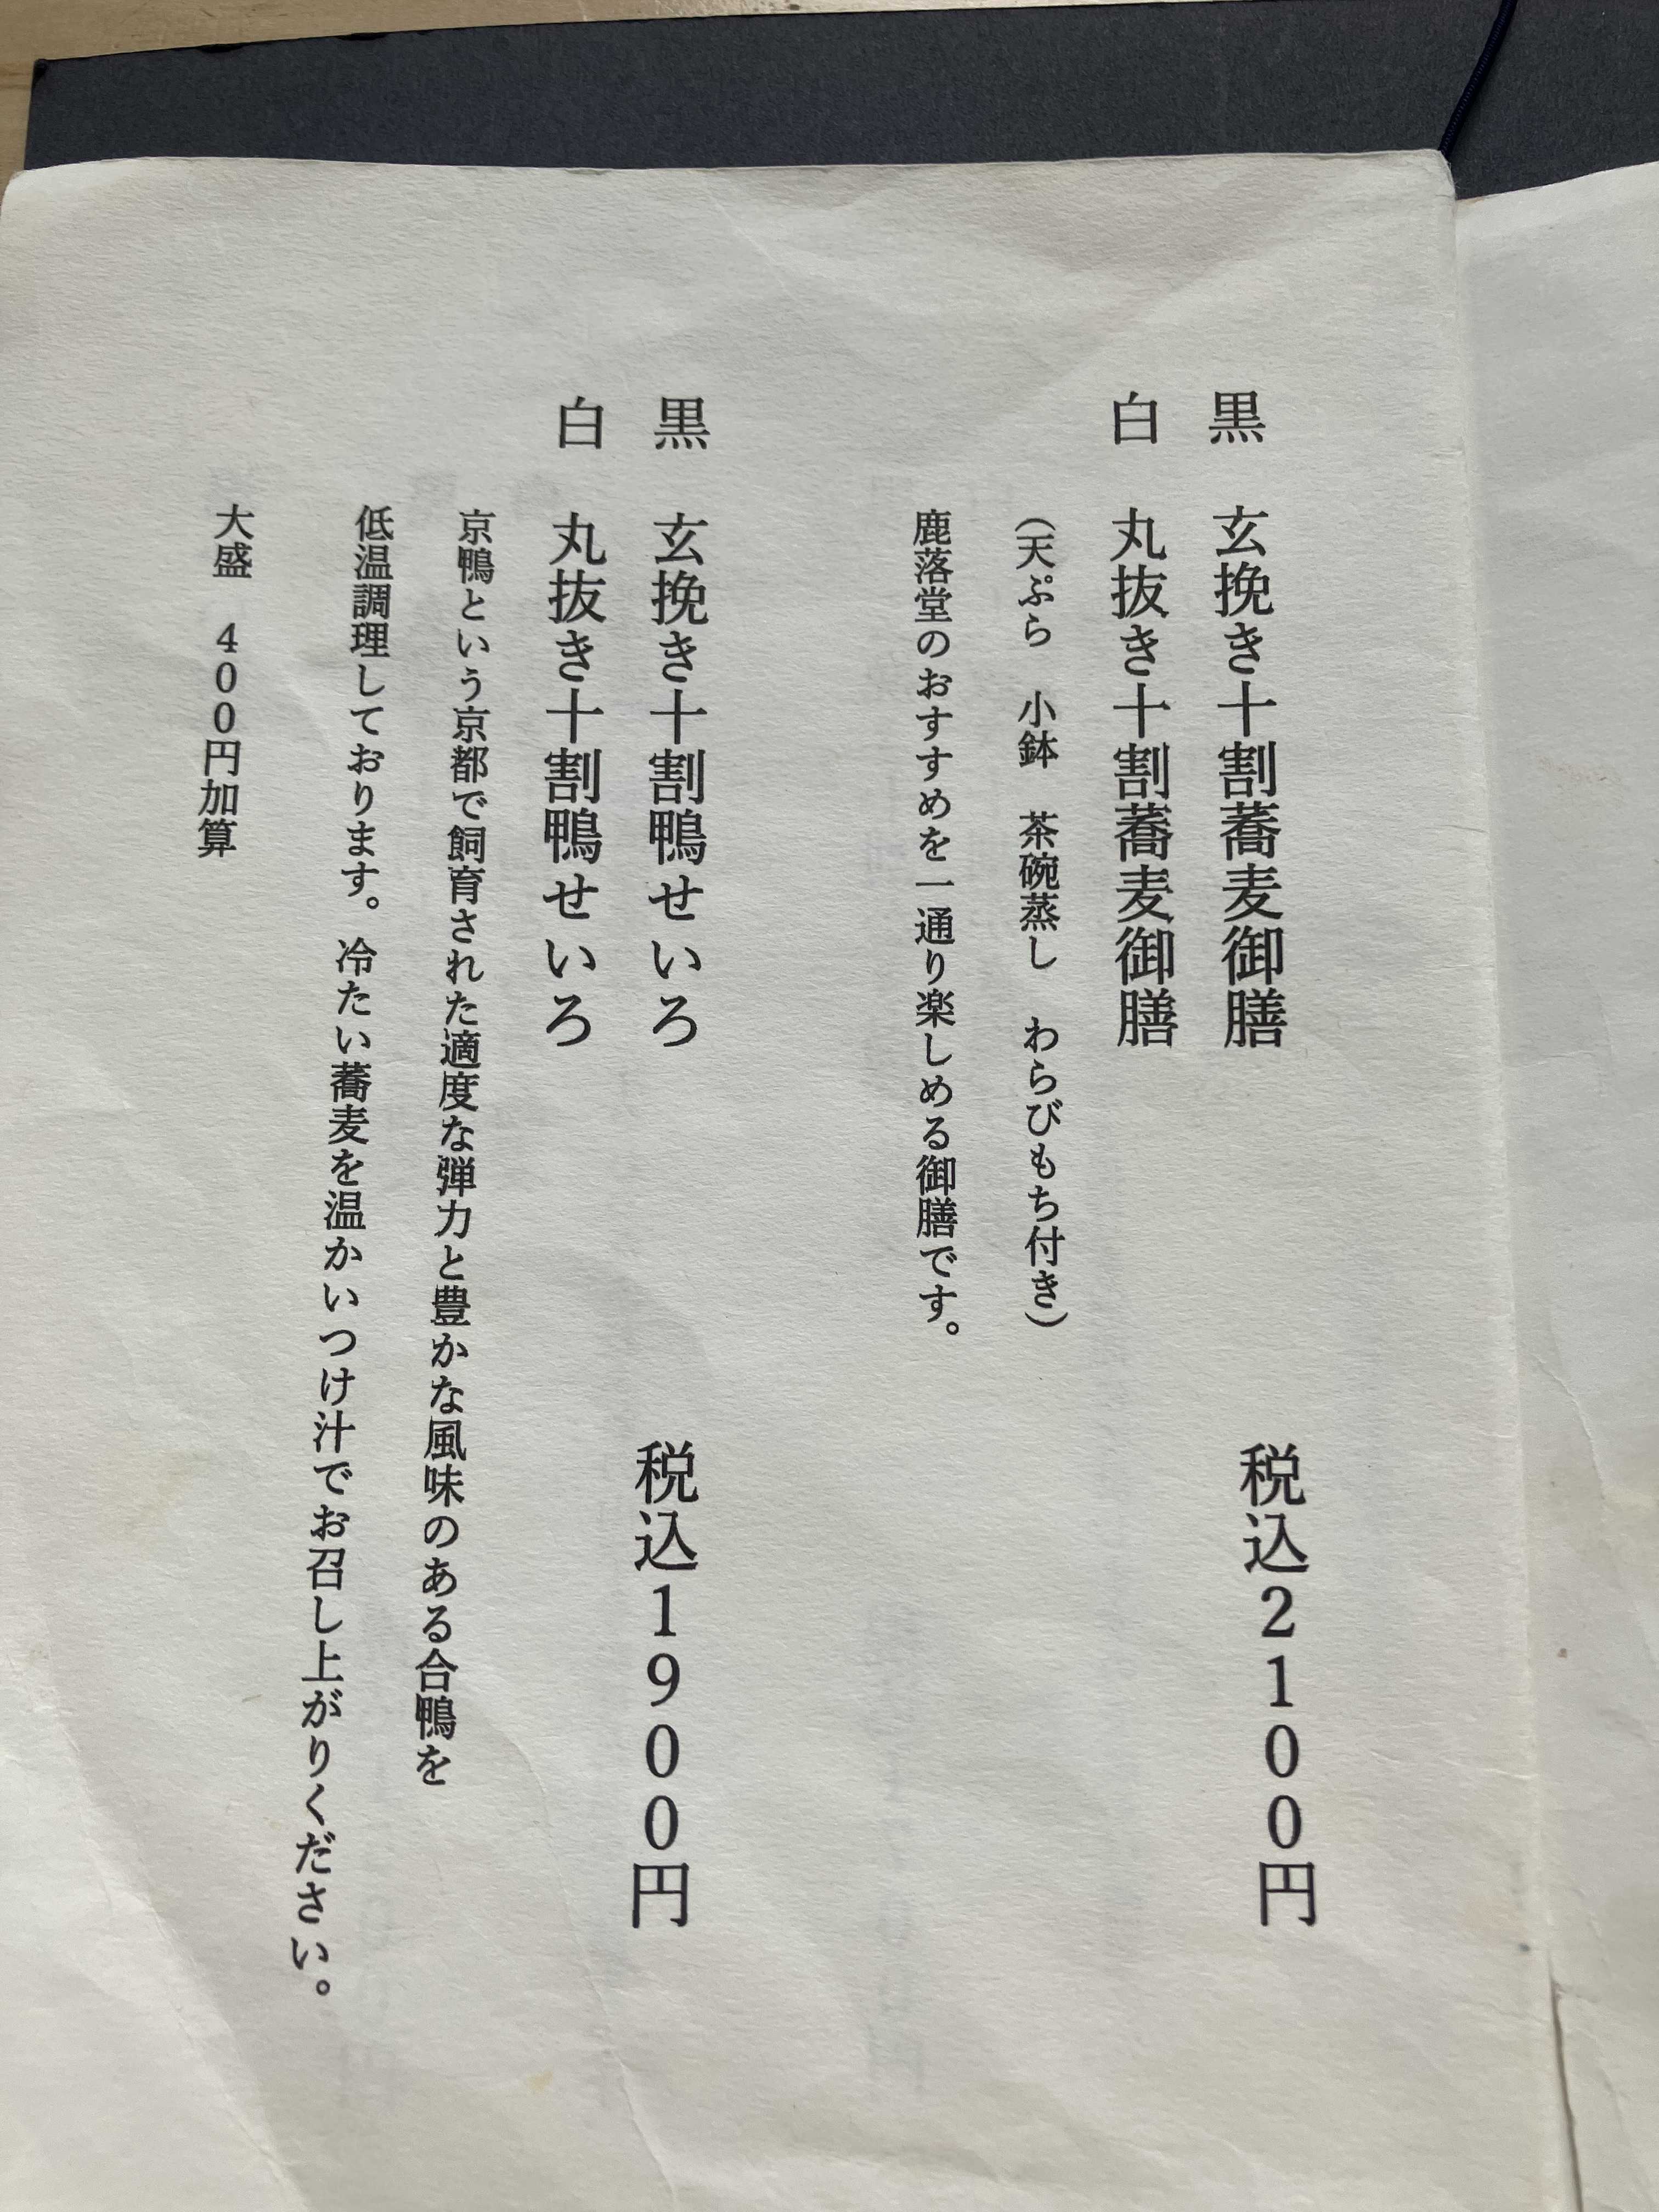 黒 玄挽き十割蕎麦御膳 税込2100円
白 丸抜き十割蕎麦御膳
(天ぷら 小鉢 茶碗蒸し わらびもち付き)
鹿落堂のおすすめを一通り楽しめる御膳です。
黒 玄挽き十割鴨せいろ 税込1900円
白 丸抜き十割鴨せいろ
京鴨という京都で飼育された適度な弾力と豊かな風味のある合鴨を
低温調理しております。冷たい蕎麦を温かいつけ汁でお召し上がりください。
大盛 400円加算